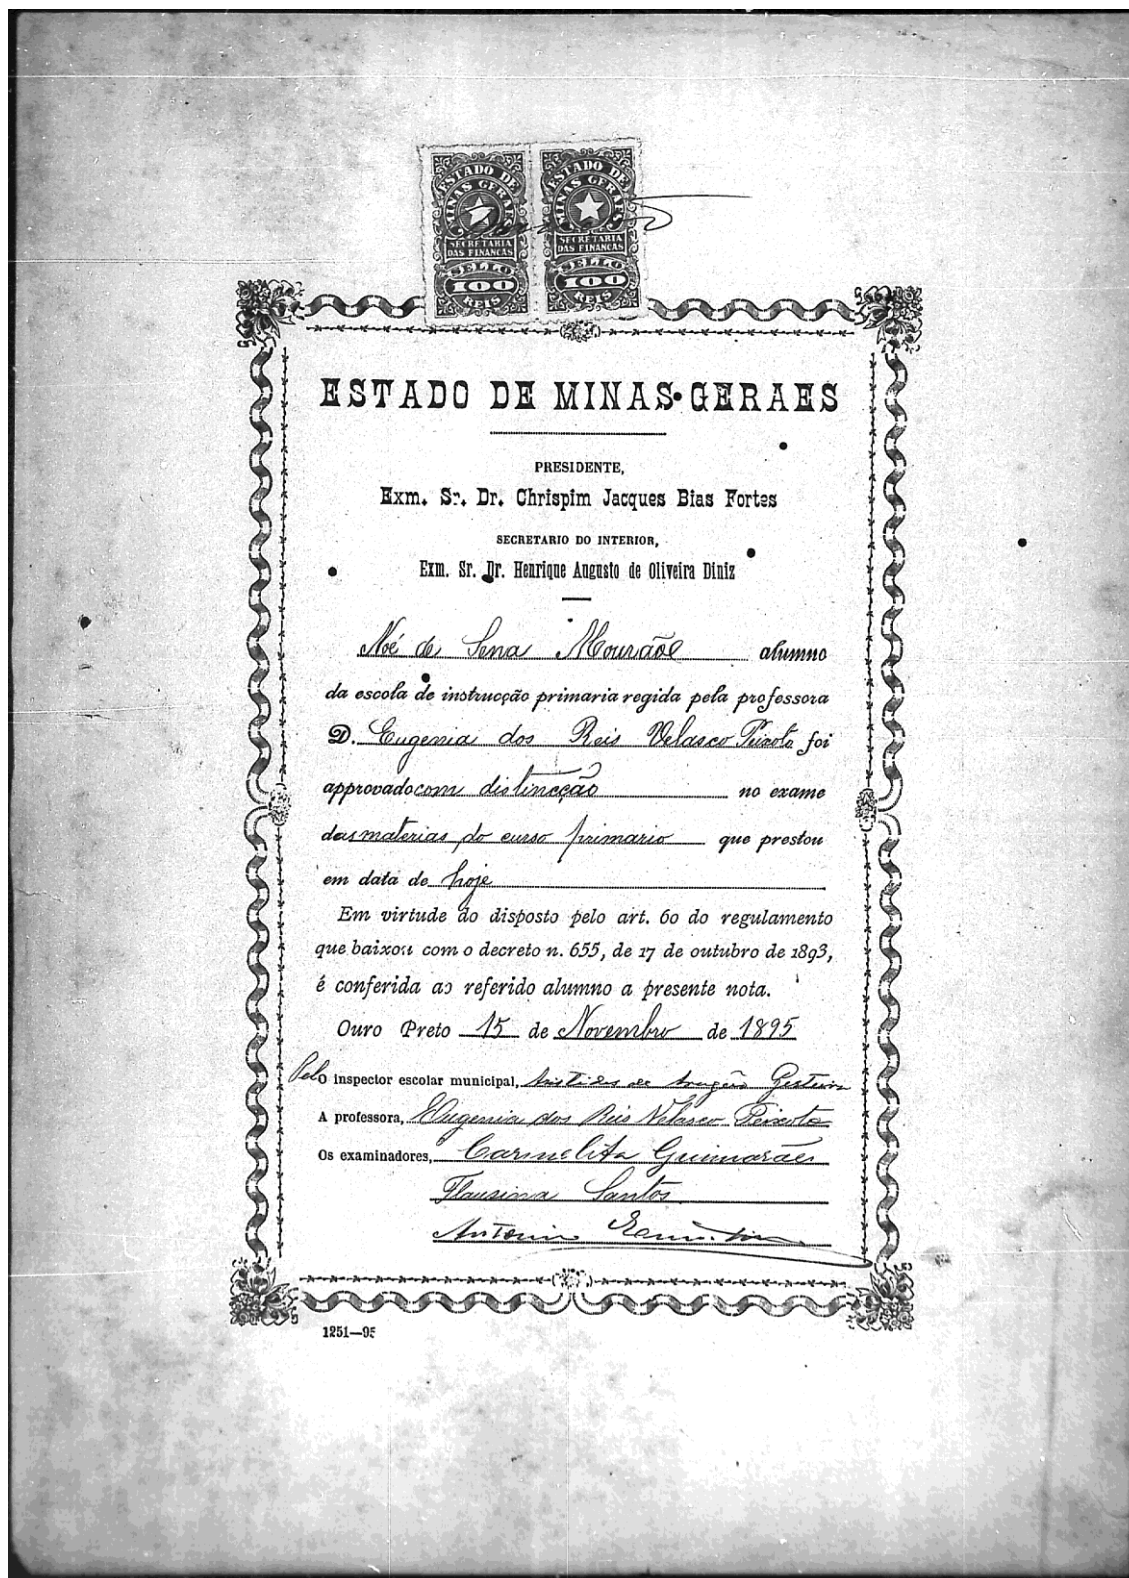 ESTADO DE MINAS GERAES
SECRETARIA DAS FINANCAS
SELLO
100
REIS
ESTADO DE MINAS GERAES
SECRETARIA DAS FINANCAS
SELLO
100
REIS
ESTADO DE MINAS GERAES
PRESIDENTE,
Exm. Sr. Dr. Chrispim Jacques Bias Fortes
SECRETARIO DO INTERIOR,
Exm. Sr. Dr. Henrique Augusto de Oliveira Diniz
Noé de Sena Mourão alumno
da escola de instrucção primaria regida pela professora
D. Eugenia dos Reis Velasco Peixoto foi
approvado com distincção no exame
das materias do curso primario que prestou
em data de hoje
Em virtude do disposto pelo art. 60 do regulamento
que baixou com o decreto n. 655, de 17 de outubro de 1893,
é conferida ao referido alumno a presente nota.
Ouro Preto 15 de Novembro de 1895
Pelo inspector escolar municipal, Aristides de Araujo Gesteira
A professora, Eugenia dos Reis Velasco Peixoto
Os examinadores, Carmelita Guimarães
Flausina Santos
Antonio
1251—95